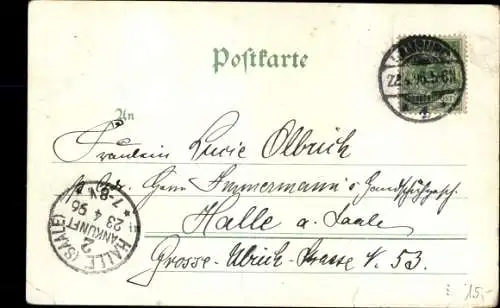 Postkarte
HAMBURG
22.4.96. 5-6N
4.
An
Fräulein Lucie Olbrich
Herrn Immermann's Handschuhgesch.
Halle a. Saale
Grosse-Ulrich-Strasse N. 53.
HALLE (SAALE)
2
ANKUNFT
23 4 96
7-8N
15.-